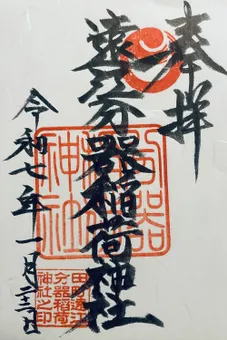 奉拝
遠江分器稲荷神社
令和七年一月
分器
稲荷
神社
田町遠江
分器稲荷
神社之印